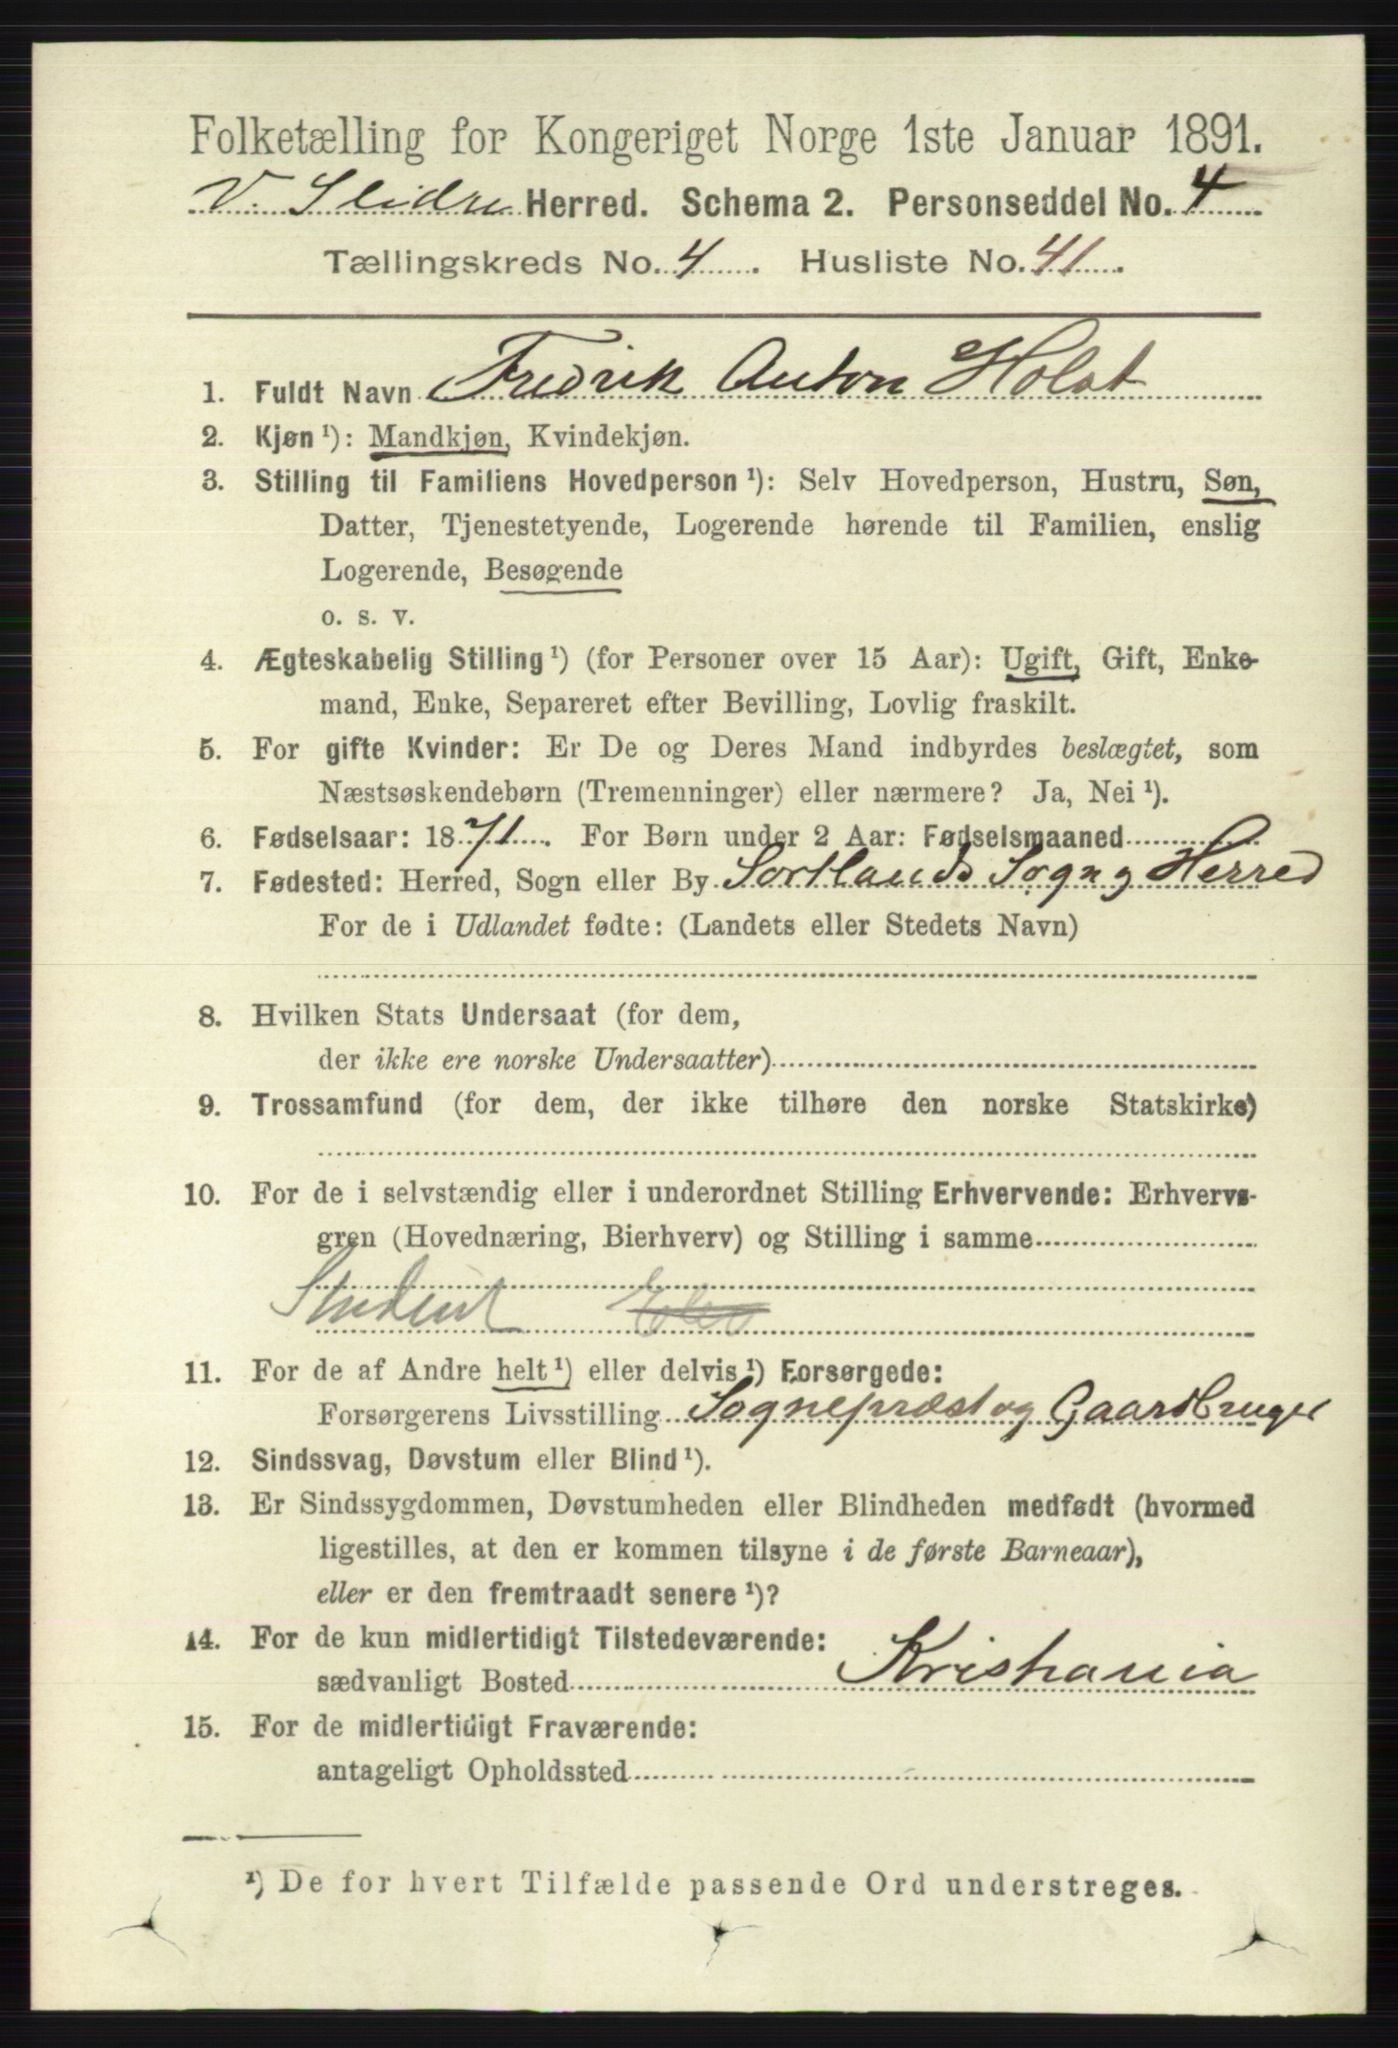 Folketælling for Kongeriget Norge 1ste Januar 1891.
V. Slidre Herred. Schema 2. Personseddel No. 4
Tællingskreds No. 4. Husliste No. 41.
1. Fuldt Navn Fredrik Anton Holst
2. Kjøn ¹): Mandkjøn, Kvindekjøn.
3. Stilling til Familiens Hovedperson ¹): Selv Hovedperson, Hustru, Søn,
Datter, Tjenestetyende, Logerende hørende til Familien, enslig
Logerende, Besøgende
o. s. v.
4. Ægteskabelig Stilling ¹) (for Personer over 15 Aar): Ugift, Gift, Enke-
mand, Enke, Separeret efter Bevilling, Lovlig fraskilt.
5. For gifte Kvinder: Er De og Deres Mand indbyrdes beslægtet, som
Næstsøskendebørn (Tremenninger) eller nærmere? Ja, Nei ¹).
6. Fødselsaar: 1871. For Børn under 2 Aar: Fødselsmaaned
7. Fødested: Herred, Sogn eller By Sortlands Sogn og Herred
For de i Udlandet fødte: (Landets eller Stedets Navn)
8. Hvilken Stats Undersaat (for dem,
der ikke ere norske Undersaatter)
9. Trossamfund (for dem, der ikke tilhøre den norske Statskirke)
10. For de i selvstændig eller i underordnet Stilling Erhvervende: Erhvervs-
gren (Hovednæring, Bierhverv) og Stilling i samme
Student Elev
11. For de af Andre helt ¹) eller delvis ¹) Forsørgede:
Forsørgerens Livsstilling Sognepræst og Gaardbruger
12. Sindssvag, Døvstum eller Blind ¹).
13. Er Sindssygdommen, Døvstumheden eller Blindheden medfødt (hvormed
ligestilles, at den er kommen tilsyne i de første Barneaar),
eller er den fremtraadt senere ¹)?
14. For de kun midlertidigt Tilstedeværende:
sædvanligt Bosted Kristiania
15. For de midlertidigt Fraværende:
antageligt Opholdssted
¹) De for hvert Tilfælde passende Ord understreges.